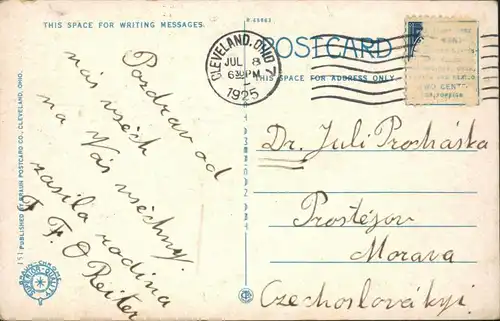 THIS SPACE FOR WRITING MESSAGES.
R-49863
POSTCARD
THIS SPACE FOR ADDRESS ONLY.
CLEVELAND, OHIO 7
JUL 8
6 30 PM
1925
Pozdrav od
nás všech
na Vás všechny.
zasila rodina
F. F. O Reiter
Dr. Juli Procháska
Prostějov
Morava
Czechoslovákyi.
151 PUBLISHED BY BRAUN POSTCARD CO., CLEVELAND, OHIO.
SUPERIOR-QUALITY